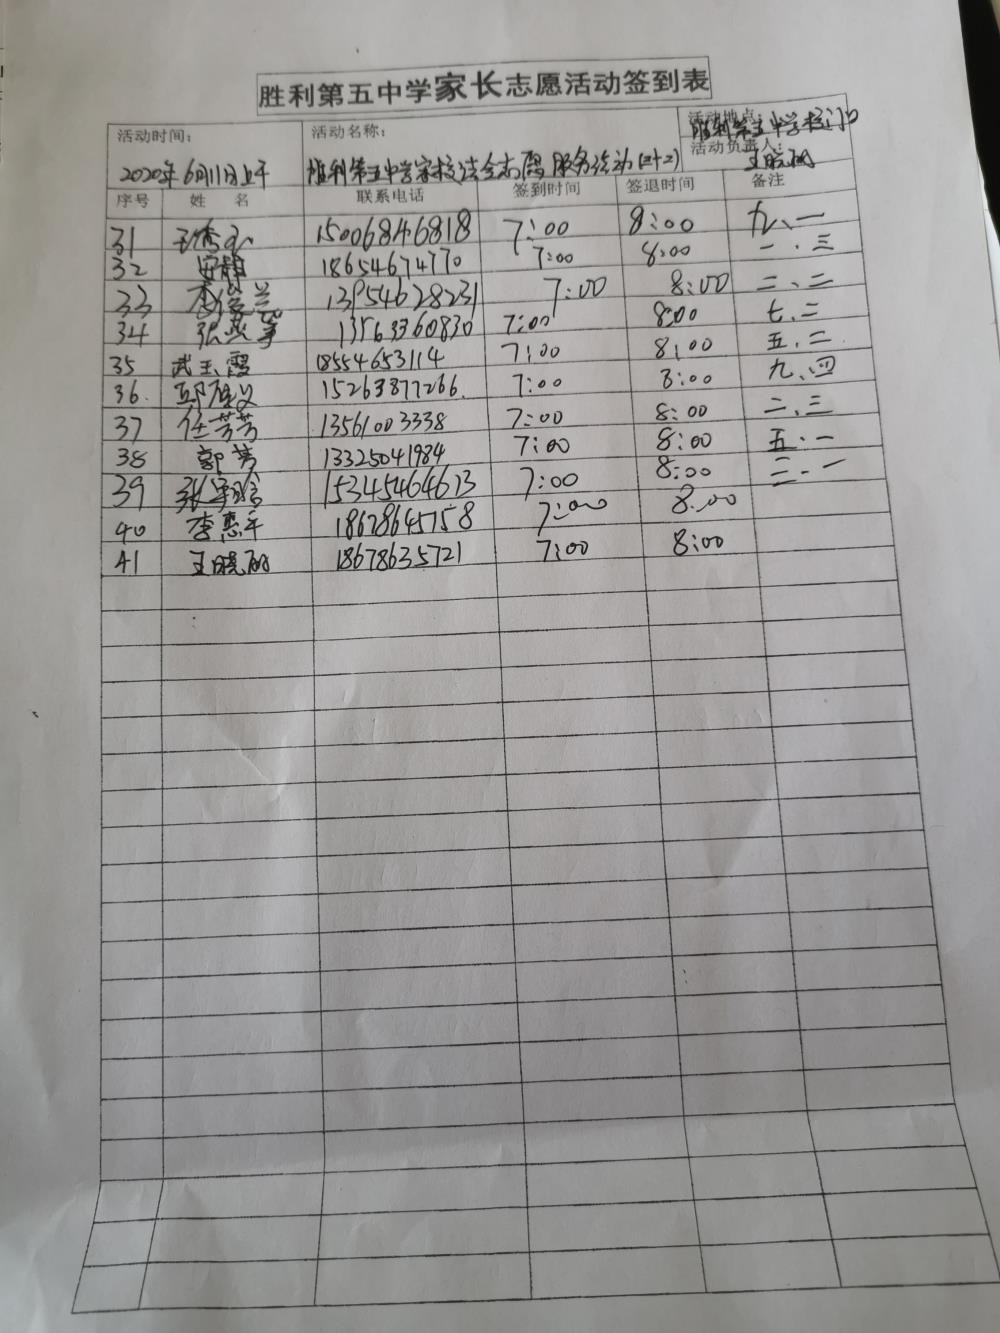 胜利第五中学家长志愿活动签到表
活动时间： 活动名称： 活动地点：
胜利第五中学校门口
2020年6月11日上午 胜利第五中学家校 志愿服务活动(2+2) 活动负责人：
王晓丽
序号 姓名 联系电话 签到时间 签退时间 备注
31 15006846818 7:00 8:00 九、一
32 安静 18654674770 7:00 8:00 一、三
33 13954628231 7:00 8:00 二、二
34 张燕 13563360830 7:00 8:00 七、二
35 武玉霞 18554653114 7:00 8:00 五、二
36. 15263877266. 7:00 8:00 九、四
37 任芳芳 13561003338 7:00 8:00 二、三
38 郭芳 13325041984 7:00 8:00 五、一
39 张 15345464613 7:00 8:00 二、一
40 李惠平 18678645758 7:00 8:00
41 王晓丽 18678635721 7:00 8:00